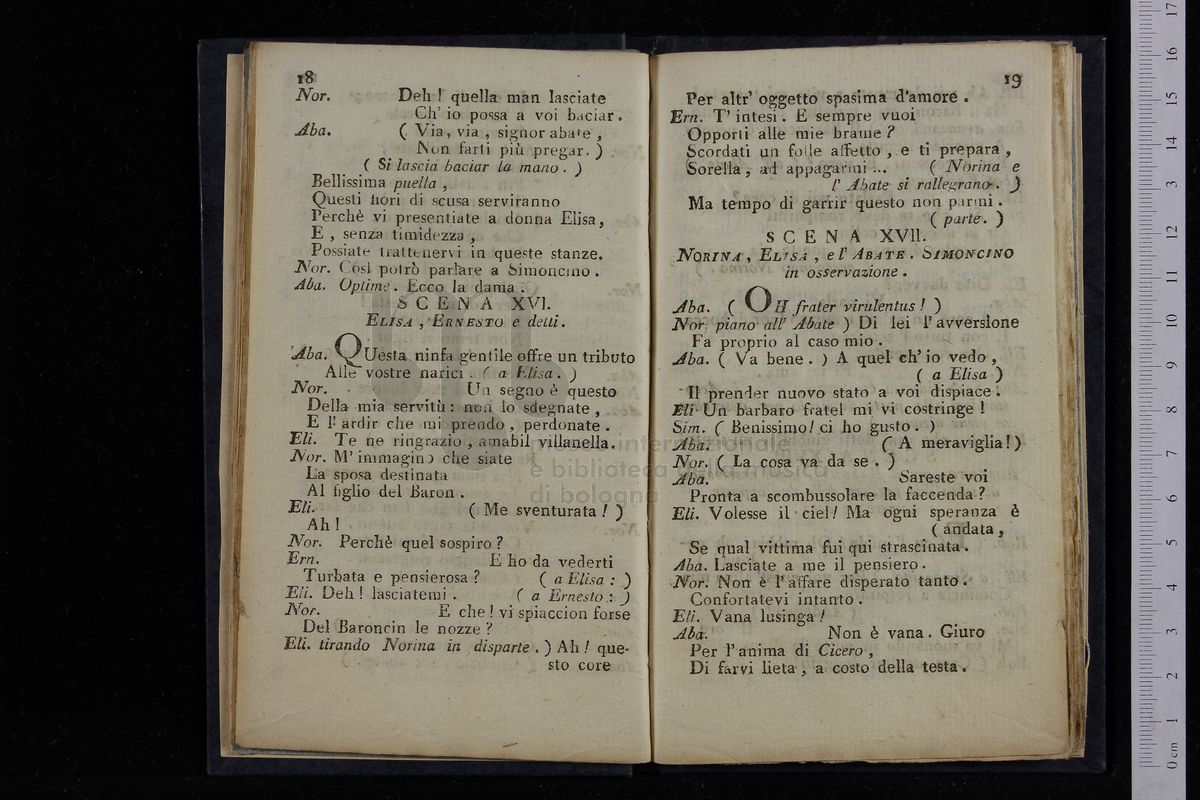 18
Nor. Deh ! quella man lasciate
Ch' io possa a voi baciar.
Aba. ( Via, via , signor abate ,
Non farti più pregar. )
( Si lascia baciar la mano . )
Bellissima puella ,
Questi fiori di scusa serviranno
Perchè vi presentiate a donna Elisa,
E , senza timidezza ,
Possiate trattenervi in queste stanze.
Nor. Così potrò parlare a Simoncino .
Aba. Optime . Ecco la dama .
SCENA XVI.
ELISA , ERNESTO e detti.
Aba. QUesta ninfa gentile offre un tributo
Alle vostre narici . ( a Elisa . )
Nor. Un segno è questo
Della mia servitù : non lo sdegnate ,
E l' ardir che mi prendo , perdonate .
Eli. Te ne ringrazio , amabil villanella.
Nor. M' immagino che siate
La sposa destinata
Al figlio del Baron .
Eli. ( Me sventurata ! )
Ah !
Nor. Perchè quel sospiro ?
Ern. E ho da vederti
Turbata e pensierosa ? ( a Elisa : )
Eli. Deh ! lasciatemi . ( a Ernesto : )
Nor. E che ! vi spiaccion forse
Del Baroncin le nozze ?
Eli. tirando Norina in disparte . ) Ah ! que-
sto core
19
Per altr' oggetto spasima d'amore .
Ern. T' intesi . E sempre vuoi
Opporti alle mie brame ?
Scordati un folle affetto , e ti prepara ,
Sorella , ad appagarmi ... ( Norina e
l' Abate si rallegrano . )
Ma tempo di garrir questo non parmi .
( parte . )
SCENA XVII.
NORINA , ELISA , e l' ABATE . SIMONCINO
in osservazione .
Aba. ( OH frater virulentus ! )
Nor. piano all' Abate ) Di lei l' avversione
Fa proprio al caso mio .
Aba. ( Va bene . ) A quel ch' io vedo ,
( a Elisa )
Il prender nuovo stato a voi dispiace .
Eli Un barbaro fratel mi vi costringe !
Sim. ( Benissimo ! ci ho gusto . )
Aba. ( A meraviglia ! )
Nor. ( La cosa va da se . )
Aba. Sareste voi
Pronta a scombussolare la faccenda ?
Eli. Volesse il ciel ! Ma ogni speranza è
( andata ,
Se qual vittima fui qui strascinata .
Aba. Lasciate a me il pensiero .
Nor. Non è l' affare disperato tanto .
Confortatevi intanto .
Eli. Vana lusinga !
Aba. Non è vana . Giuro
Per l' anima di Cicero ,
Di farvi lieta , a costo della testa .
museo internazionale
e biblioteca della musica
di bologna
0 cm 1 2 3 4 5 6 7 8 9 10 11 12 13 14 15 16 17